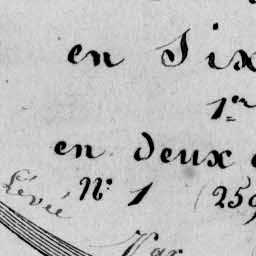 en Six
1er
en deux
Levie
N° 1 (259
Par